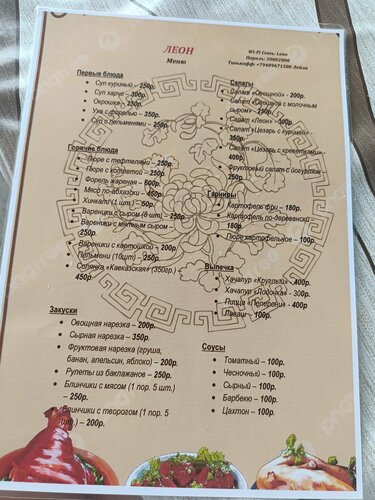 ЛЕОН
Меню
WI-Fi Сеть: Leon
Пароль: 20002000
Тинькофф: +79409671580 Лейла
Первые блюда
Суп куриный – 250р.
Суп харчо – 300р.
Окрошка – 250р.
Уха с форелью – 350р.
Суп с пельменями – 250р.
Горячие блюда
Пюре с тефтелями – 250р.
Пюре с котлетой – 250р.
Форель жареная – 600р.
Мясо по-абхазски – 450р.
Хинкали (1 шт.) – 60р.
Вареники с сыром (8 шт) – 250р.
Вареники с мятным сыром –
250р.
Вареники с картошкой – 200р.
Пельмени (10шт) – 250р.
Солянка «Кавказская» (350гр.) –
450р.
Закуски
Овощная нарезка – 200р.
Сырная нарезка – 350р.
Фруктовая нарезка (груша,
банан, апельсин, яблоко) – 200р.
Рулеты из баклажанов – 250р.
Блинчики с мясом (1 пор. 5 шт.)
– 250р.
Блинчики с творогом (1 пор. 5
шт.) – 200р.
Салаты
Салат «Овощной» - 200р.
Салат «Овощной с молочным
сыром» – 250р.
Салат «Леон» – 300р.
Салат «Цезарь с курицей» –
350р.
Салат «Цезарь с креветками» –
400р.
Фруктовый салат с йогуртом –
250р.
Гарниры
Картофель фри – 180р.
Картофель по-деревенски –
180р.
Пюре картофельное – 100р.
Выпечка
Хачапур «Круглый» – 400р.
Хачапур «Лодочка» - 300р.
Пицца «Пеперони» – 400р.
Лаваш – 100р.
Соусы
Томатный – 100р.
Чесночный – 100р.
Сырный – 100р.
Барбекю – 100р.
Цахтон – 100р.